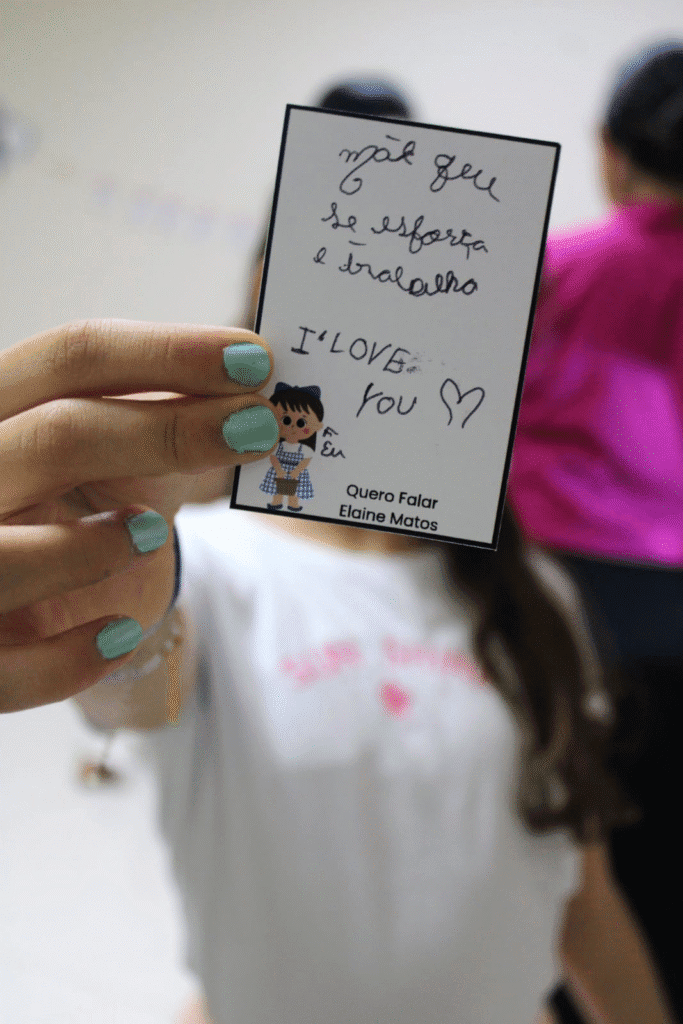 mãe que
se esforça
e trabalha
I'LOVE
YOU
Eu
Quero Falar
Elaine Matos